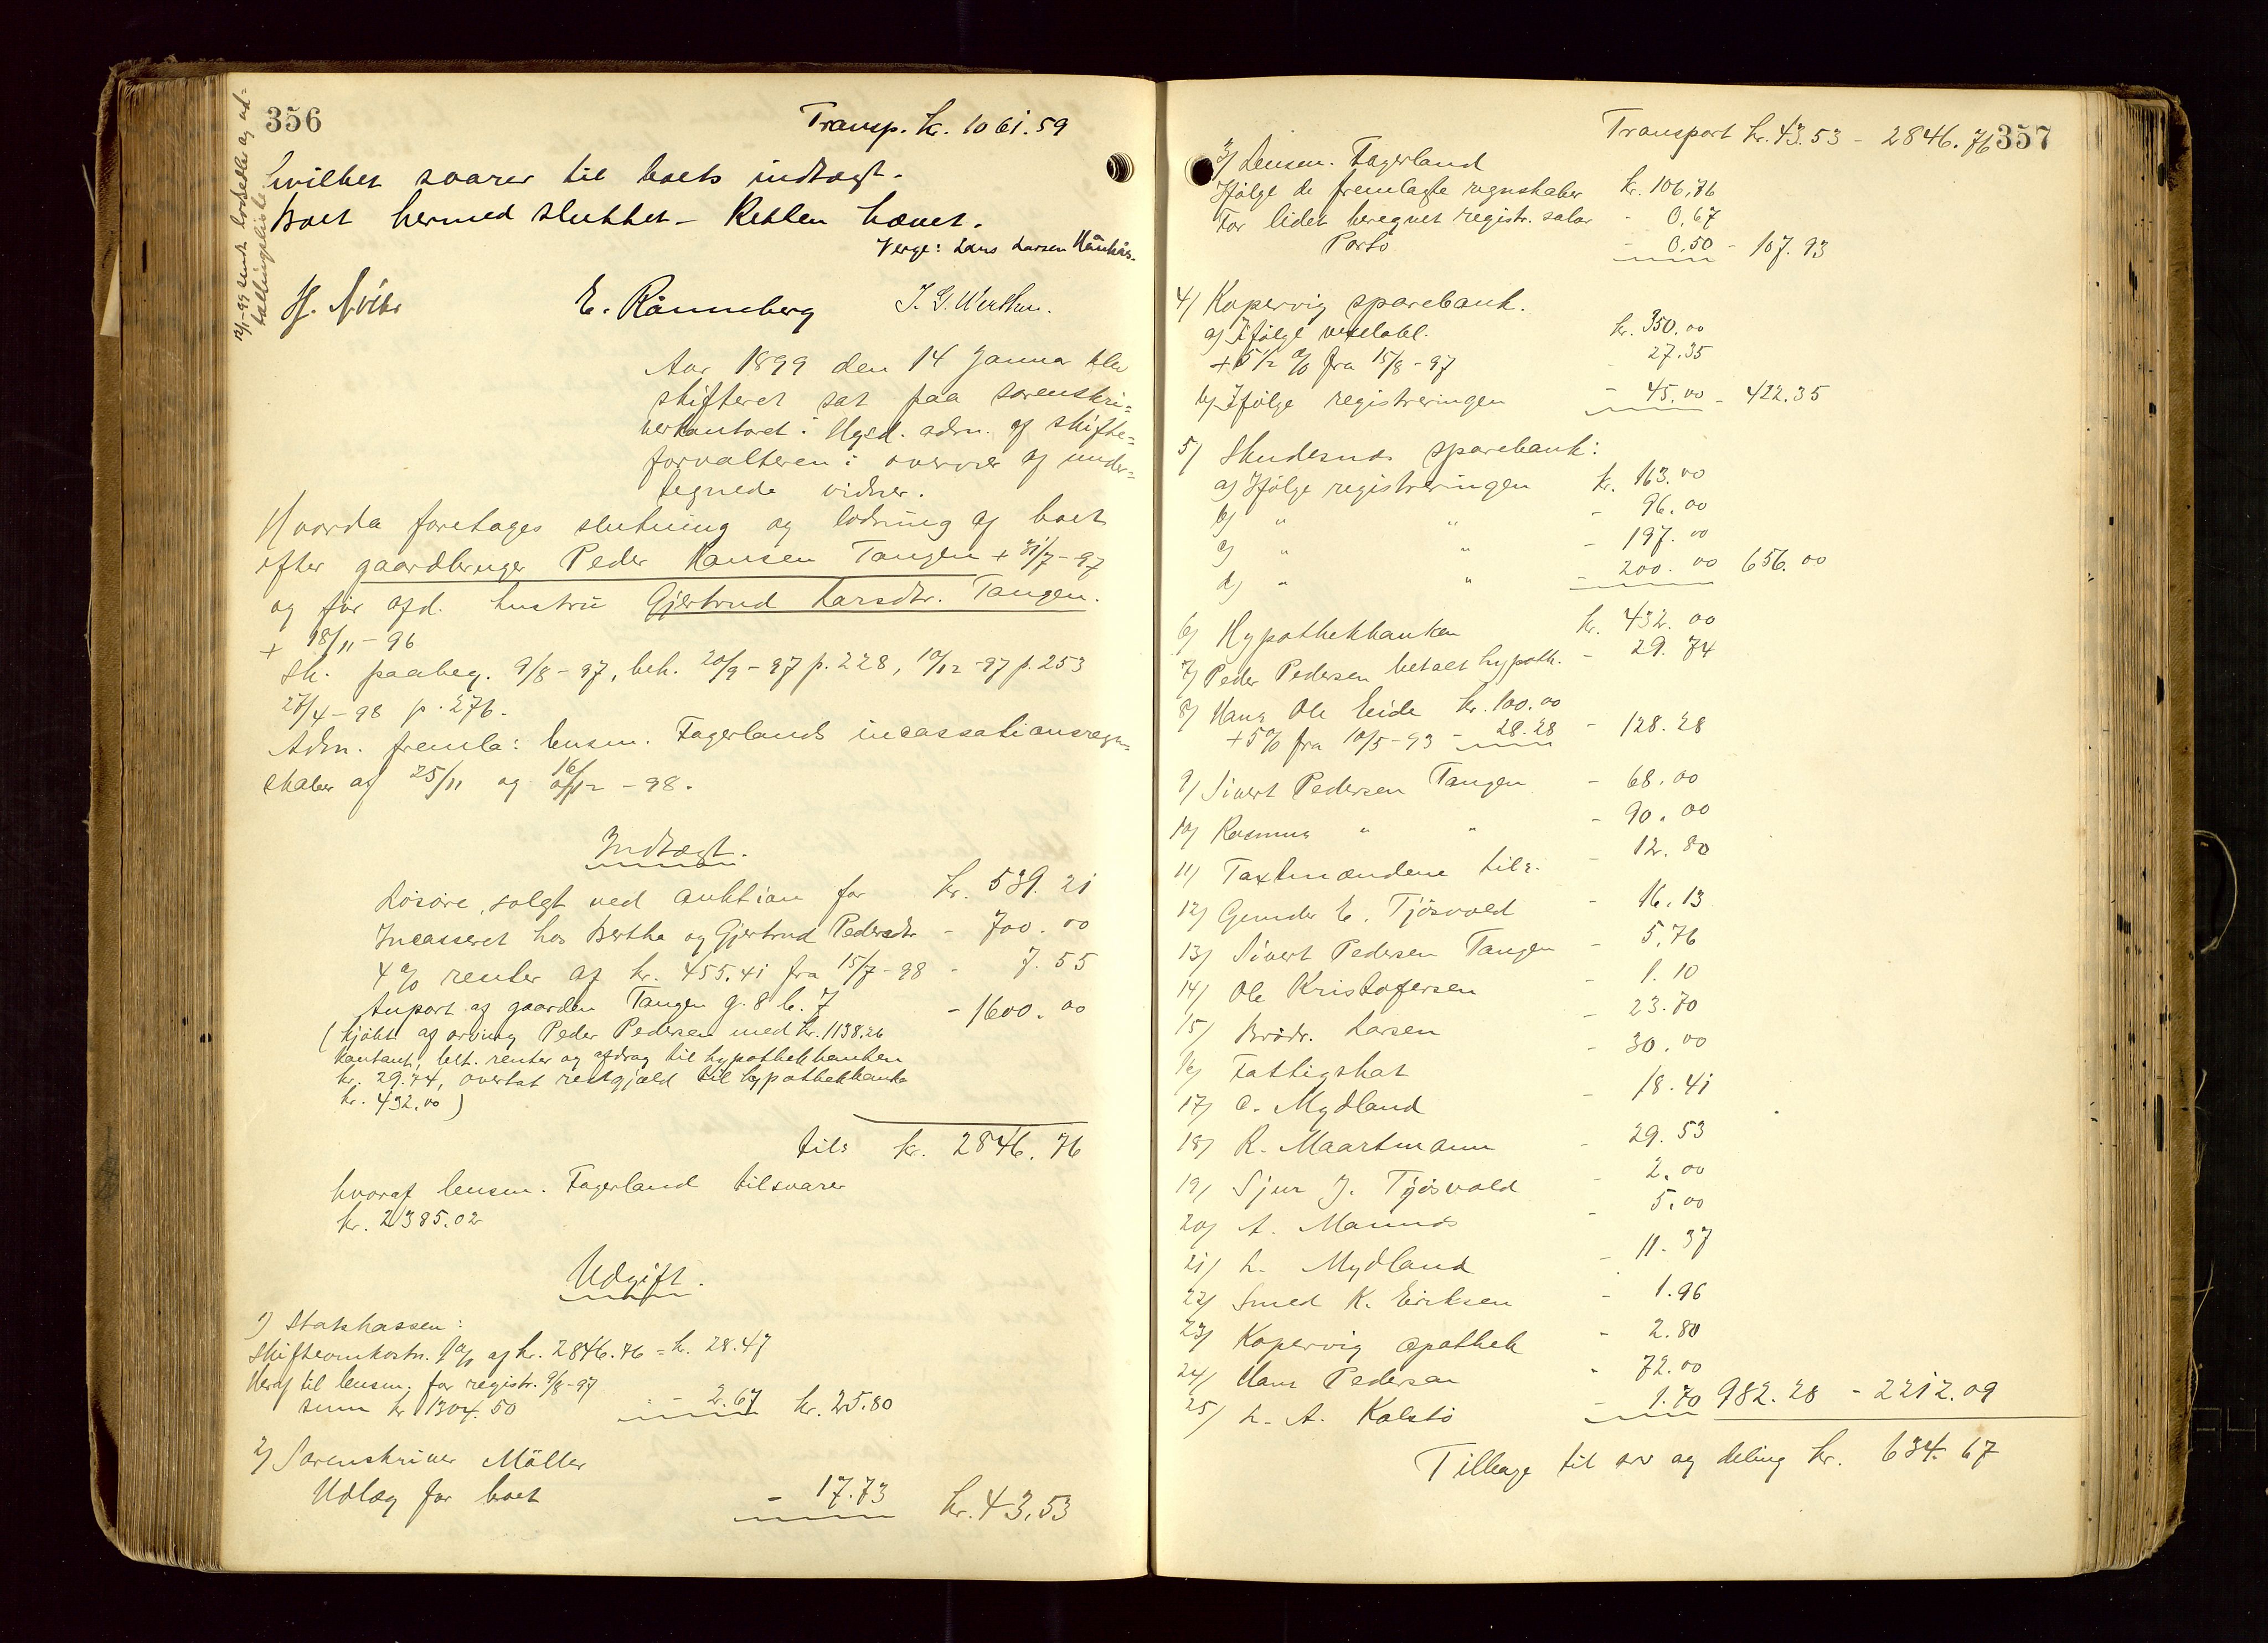 356
Transp. kr. 1061.59
hvilket svarer til boets indtægt.
Boet hermed sluttet – Retten hævet.
Verge: Lars Larsen
E. Rönneberg
Aar 1899 den 14 Januar blev
skifteret sat paa sorenskri=
verkontoret i Hgsd. adm. af skifte=
forvalteren i overvær af under=
tegnede vidner.
Hvorda foretoges slutning og lodning af boet
efter gaardbruger Peder Hansen Tangen + 31/7–97
og før afd. hustru Gjertrud Larsdtr. Tangen.
+ 18/11–96
Sk. paabeg. 9/8–97, beh. 20/9–97 p. 228, 10/12–97 p. 253
27/4–98 p. 276.
Adm. fremla: lensm. Fagerlands incassationsregn=
skaber af 25/11 og 16/12 –98.
Indtægt.
Løsøre, solgt ved auktion for kr. 539.21
Incasseret hos Bertha og Gjertrud Pedersdtr – 700.00
4 % renter af kr. 455.41 fra 15/7–98 – 7.55
Anpart af gaarden Tangen g. 8 b. 7 – 1600.00
(kjøbt af arving Peder Pedersen med kr. 1138.26
kontant, bet. renter og afdrag til hypothekbanken
kr. 29.74, overtat restgjæld til hypothekbanke
kr. 432.00)
tils kr. 2846.76
hvoraf lensm. Fagerland tilsvarer
kr. 2385.02
Udgift.
1) Statskassen:
Skifteomkostn. 1 % af kr. 2846.76 = kr. 28.47
Heraf til lensm. for registr. 9/8–97
sum kr 1304.50 ÷ – 2.67 kr. 25.80
2) Sorenskriver Möller
Udlæg for boet – 17.73 kr. 43.53
357
Transport kr. 43.53 – 2846.76
3) Lensm. Fagerland
Ifølge de fremlagte regnskaber kr. 106.76
For lidet beregnet registr. salær – 0.67
Porto – 0.50 – 107.93
4) Kopervig sparebank.
a) Ifølge vexelobl. kr. 350.00
+ 5 1/2 % fra 15/8–97 – 27.35
b) Ifølge registreringen – 45.00 – 422.35
5) Skudesnæs sparebank:
a) Ifølge registreringen kr. 163.00
b) " " – 96.00
c) " " – 197.00
d) " " – 200.00 656.00
6) Hypothekbanken kr. 432.00
7) Peder Pedersen betalt hypoth. – 29.74
8) Hans Ole Eide kr. 100.00
+ 5 % fra 10/5–93 – 28.28 – 128.28
9) Sivert Pedersen Tangen – 68.00
10) Rasmus " " – 90.00
11) Taxtmændene tils. – 12.80
12) Gunder E. Tjösvold – 16.13
13) Sivert Pedersen Tangen – 5.76
14) Ole Kristofersen – 1.10
15) Brödr. Larsen – 23.70
16) Fattigskat – 30.00
17) C. Mydland – 18.41
18) R. Maartmann – 29.53
19) Sjur J. Tjösvold – 2.00
20) A. – 5.00
21) L. Mydland – 11.37
22) Smed K. Eriksen – 1.96
23) Kopervig apothek – 2.80
24) Hans Pedersen – 72.00
25) L. A. Kolstö – 1.70 982.28 – 2212.09
Tilbage til arv og deling kr. 634.67